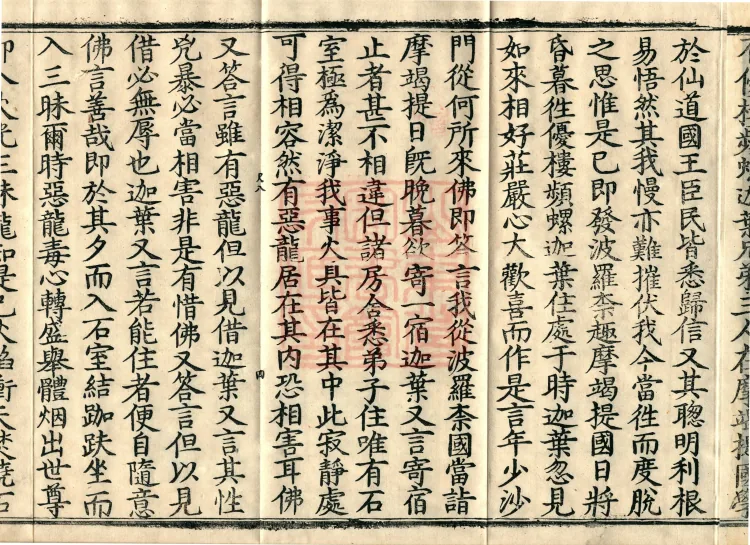 有優樓頻螺迦葉兄弟三人在摩竭提國學
於仙道國王臣民皆悉歸信又其聰明利根
易悟然其我慢亦難摧伏我今當徃而度脫
之思惟是已即發波羅柰趣摩竭提國日將
昏暮徃優樓頻螺迦葉住處于時迦葉忽見
如來相好莊嚴心大歡喜而作是言年少沙
門從何所來佛即答言我從波羅柰國當詣
摩竭提日既晚暮欲寄一宿迦葉又言寄宿
止者甚不相違但諸房舍悉弟子住唯有石
室極為潔淨我事火具皆在其中此寂靜處
可得相容然有惡龍居在其內恐相害耳佛
四
又答言雖有惡龍但以見借迦葉又言其性
兇暴必當相害非是有惜佛又答言但以見
借必無辱也迦葉又言若能住者便自隨意
佛言善哉即於其夕而入石室結跏趺坐而
入三昧爾時惡龍毒心轉盛舉體烟出世尊
即入火光三昧龍知是已火焰衝天焚燒石